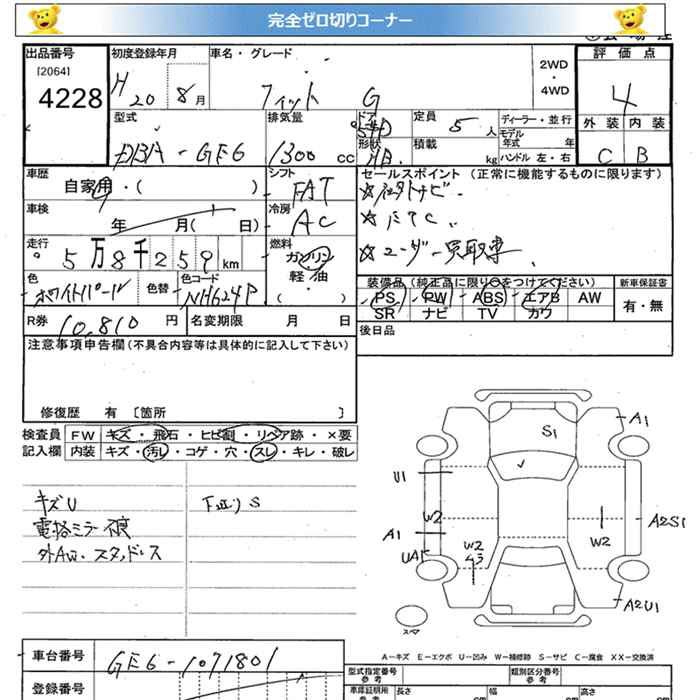 完全ゼロ切りコーナー
出品番号
[2064]
4228
初度登録年月
H 20 8 月
車名・グレード
フィット G
2WD
・
4WD
評 価 点
4
外 装 内 装
C B
型式
DBA-GE6
排気量
1300 cc
ドア
形状
定員
5 人
積載
kg
ディーラー・並行
モデル
年式 年
ハンドル 左・右
車歴
自家用・( )
シフト
FAT
車検
年 月( 日)
冷房
AC
走行
5万8千259 km
燃料
ガソリン
軽・油
( )
色
ホワイトパール
色替
色コード
NH624P
R券 10,810 円
名変期限 月 日
セールスポイント (正常に機能するものに限ります)
☆社外ナビ
☆ETC
☆ユーザー買取車
装備品(純正品に限り○をつけてください)
PS PW ABS エアB AW
SR ナビ TV カワ
新車保証書
有・無
後日品
注意事項申告欄(不具合内容等は具体的に記入して下さい)
修復歴 有 〔箇所 〕
検査員
記入欄
FW キズ・飛石・ヒビ割・リペア跡・×要
内装 キズ・汚レ・コゲ・穴・スレ・キレ・破レ
キズU
下廻りS
電格ミラー不良
外AW・スタッドレス
S1
A1
U1
W2
A1
UA1
W2
W2
A2S1
A2U1
スペア
A-キズ E-エクボ U-凹み W-補修跡 S-サビ C-腐食 XX-交換済
車台番号
GE6-1071801
登録番号
型式指定番号
参考
類別区分番号
参考
車庫証明用
参考
長さ
cm
幅
cm
高さ
cm